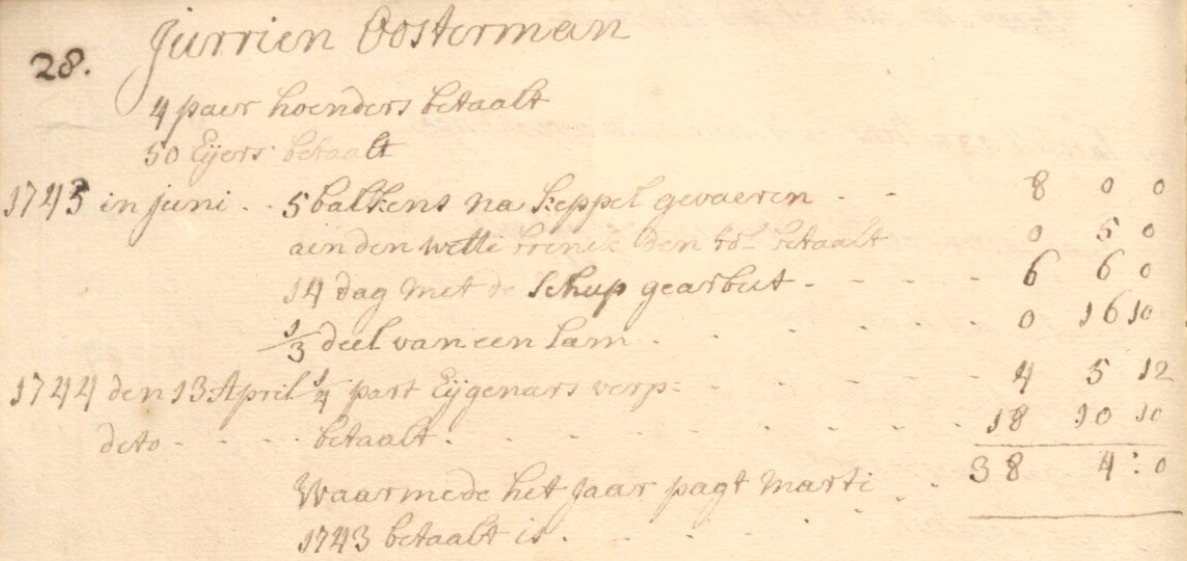 28. Jurrien Oosterman
4 paer hoenders betaalt
50 Eijers betaalt
1743 in juni . . 5 balkens na Keppel gevaeren . - 8 0 0
aen den welli den betaalt 0 5 0
14 dag met de schup gearbeit - - - - - 6 6 0
1/3 deel van een lam . . . . . . 0 16 10
1744 den 13 April 1/4 part Eijgenars verp: - - - - - - 4 5 12
deto - - - - betaalt . - - - - - - 18 10 10
38 4 : 0
Waarmede het jaar pagt marti . .
1743 betaalt is . - - -